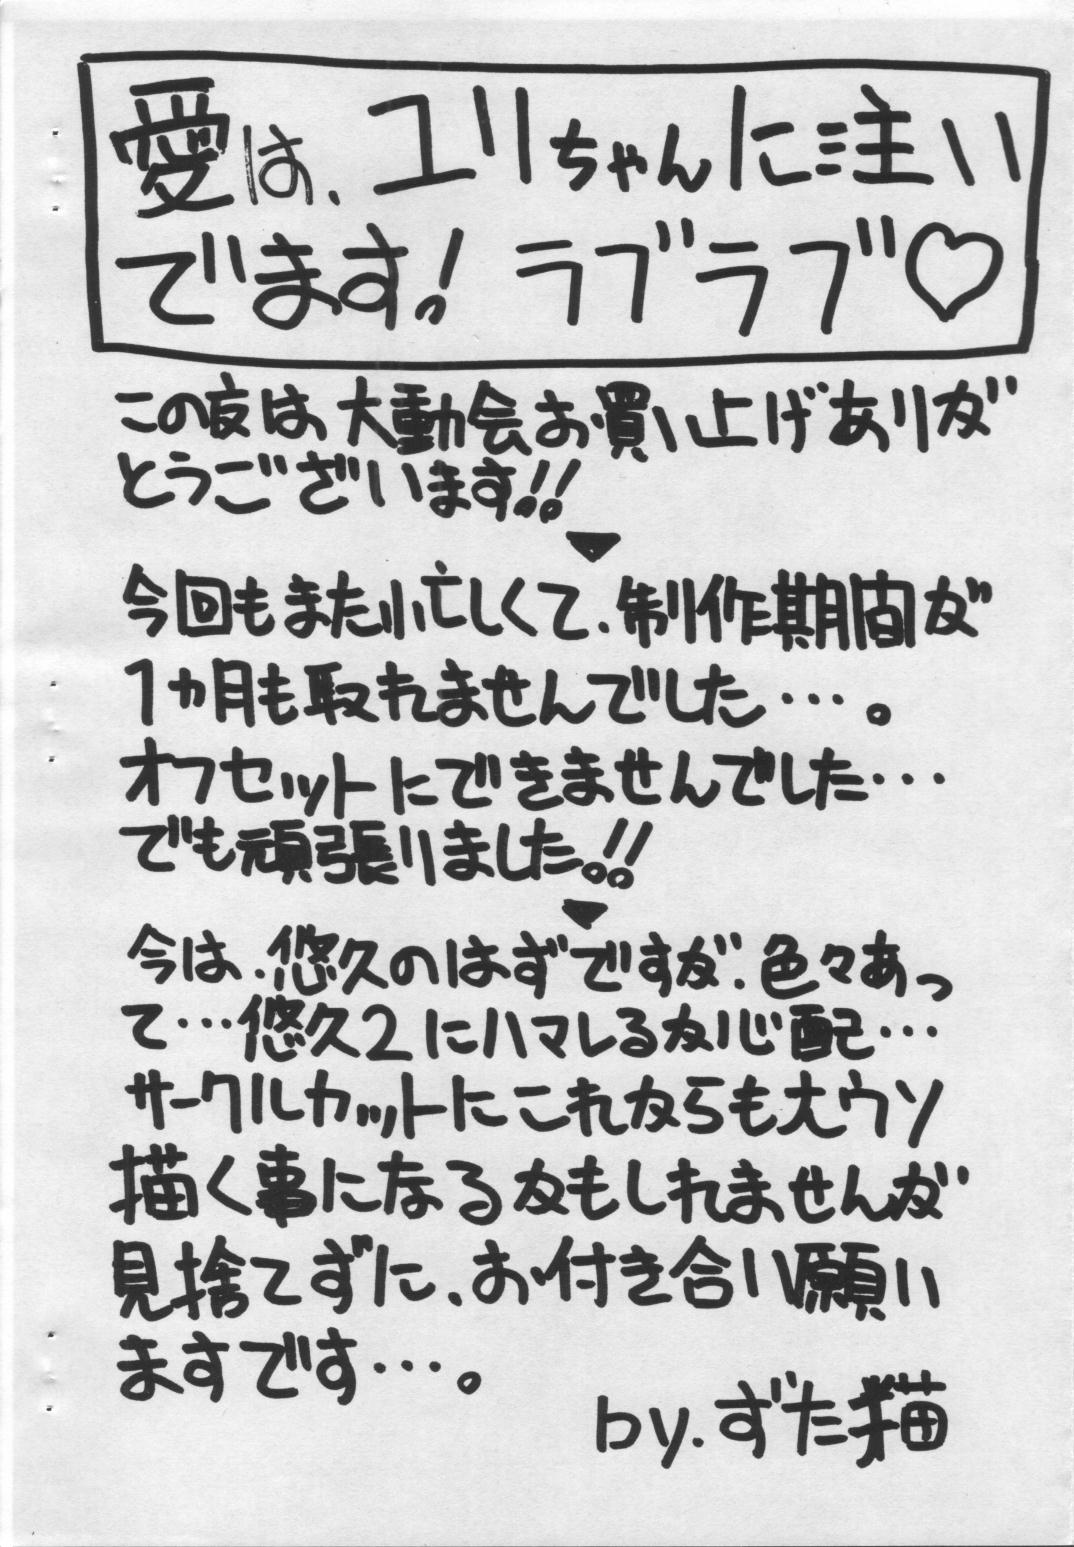 愛は、ユリちゃんに注い
でます!ラブラブ♡
この度は大動会お買い上げありが
とうございます!!
▼
今回もまた忙しくて、制作期間が
1ヵ月も取れませんでした…。
オフセットにできませんでした…
でも頑張りました。!!
▼
今は、悠久のはずですが、色々あっ
て…悠久2にハマレるか心配…
サークルカットにこれからも大ウソ
描く事になるかもしれませんが
見捨てずに、お付き合い願い
ますです…。
by.ずた猫